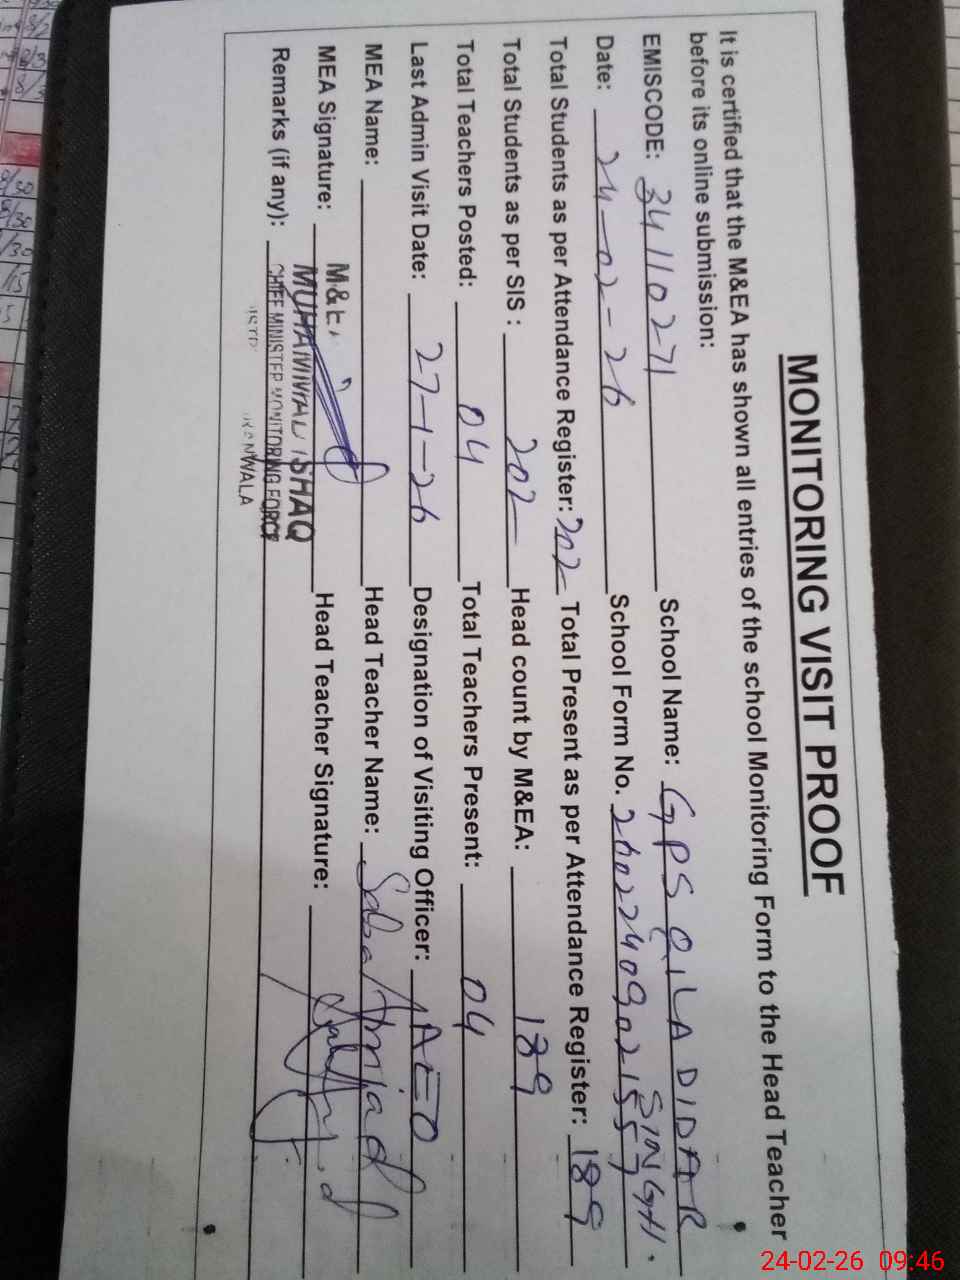 MONITORING VISIT PROOF
It is certified that the M&EA has shown all entries of the school Monitoring Form to the Head Teacher
before its online submission:
EMISCODE: 34110271 School Name: GPS QILA DIDAR SINGH.
Date: 24-02-26 School Form No.
Total Students as per Attendance Register: 202 Total Present as per Attendance Register: 189
Total Students as per SIS : 202 Head count by M&EA: 189
Total Teachers Posted: 04 Total Teachers Present: 04
Last Admin Visit Date: 27-1-26 Designation of Visiting Officer: AEO
MEA Name: Head Teacher Name: Saba Amjad
MEA Signature: Head Teacher Signature:
M&E
MUHAMMAD ISHAQ
Remarks (if any):
CHIEF MINISTER MONITORING FORCE
24-02-26 09:46